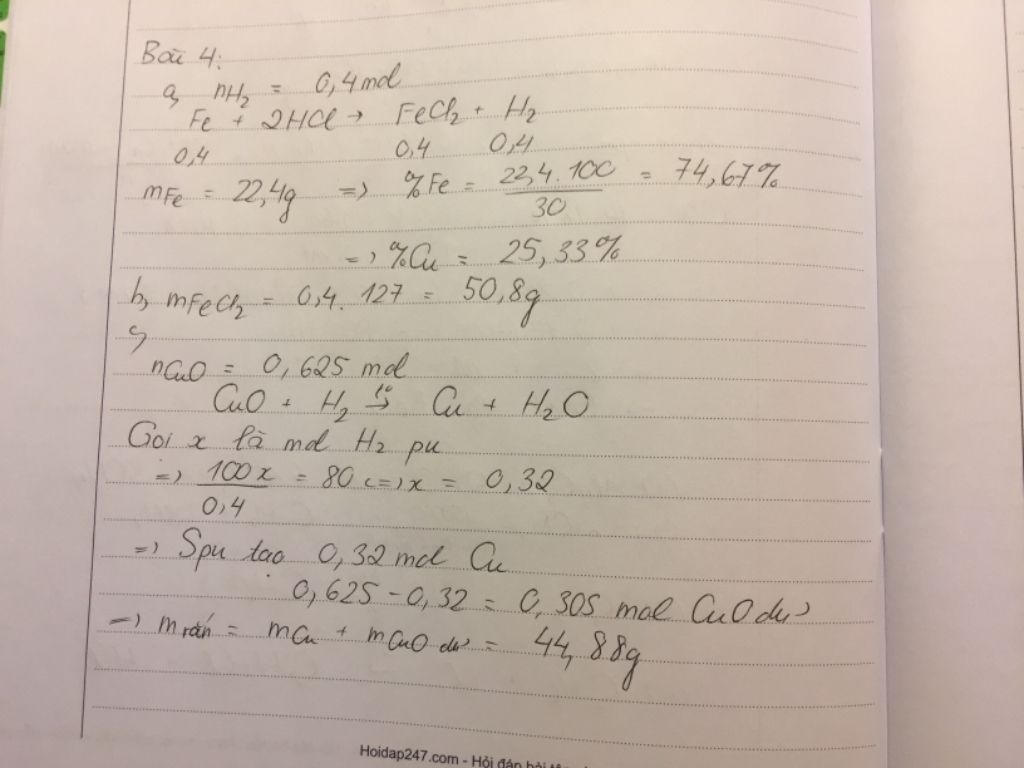 Bài 4:
a, nH₂ = 0,4 mol
Fe + 2HCl → FeCl₂ + H₂
0,4 0,4 0,4
mFe = 22,4g => %Fe = 22,4.100 / 30 = 74,67%
=> %Cu = 25,33%
b, mFeCl₂ = 0,4. 127 = 50,8g
c,
nCuO = 0,625 mol
CuO + H₂ →(t°) Cu + H₂O
Gọi x là mol H₂ pu
=> 100x / 0,4 = 80 <=> x = 0,32
=> Spu tạo 0,32 mol Cu
0,625 - 0,32 = 0,305 mol CuO dư
=> m rắn = mCu + mCuO dư = 44,88g
Hoidap247.com - Hỏi đáp bài